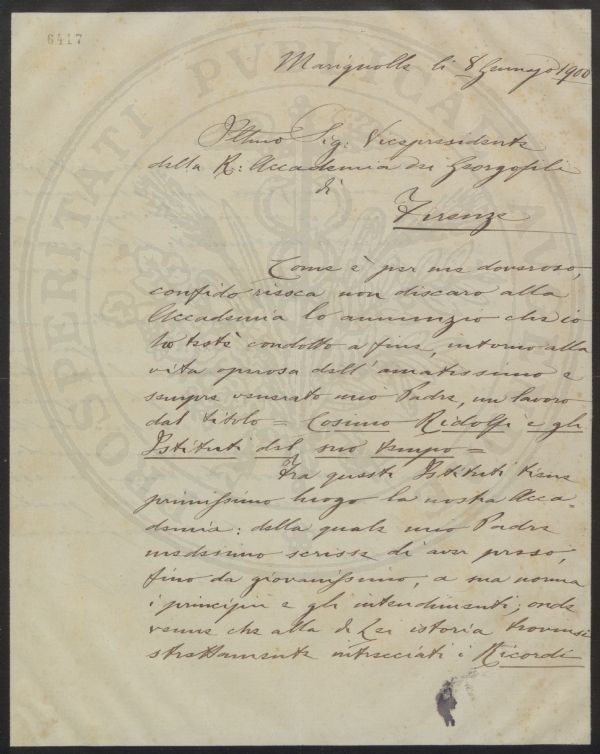 6417
Marignolle li 8 Gennajo 1900
Illmo Sig: Vicepresidente
della R: Accademia dei Georgofili
di
Firenze
Come è per me doveroso,
confido riesca non discaro alla
Accademia lo annunzio che io
ho testè condotto a fine, intorno alla
vita operosa dell'amatissimo e
sempre venerato mio Padre, un lavoro
dal titolo = Cosimo Ridolfi e gli
Istituti del suo tempo =
Fra questi Istituti tiene
primissimo luogo la nostra Acca=
demia: della quale mio Padre
medesimo scrisse di aver preso,
fino da giovanissimo, a sua norma
i principii e gli intendimenti; onde
venne che alla di Lei istoria trovansi
strettamente intrecciati i Ricordi
PROSPERITATI PVBLICAE AV